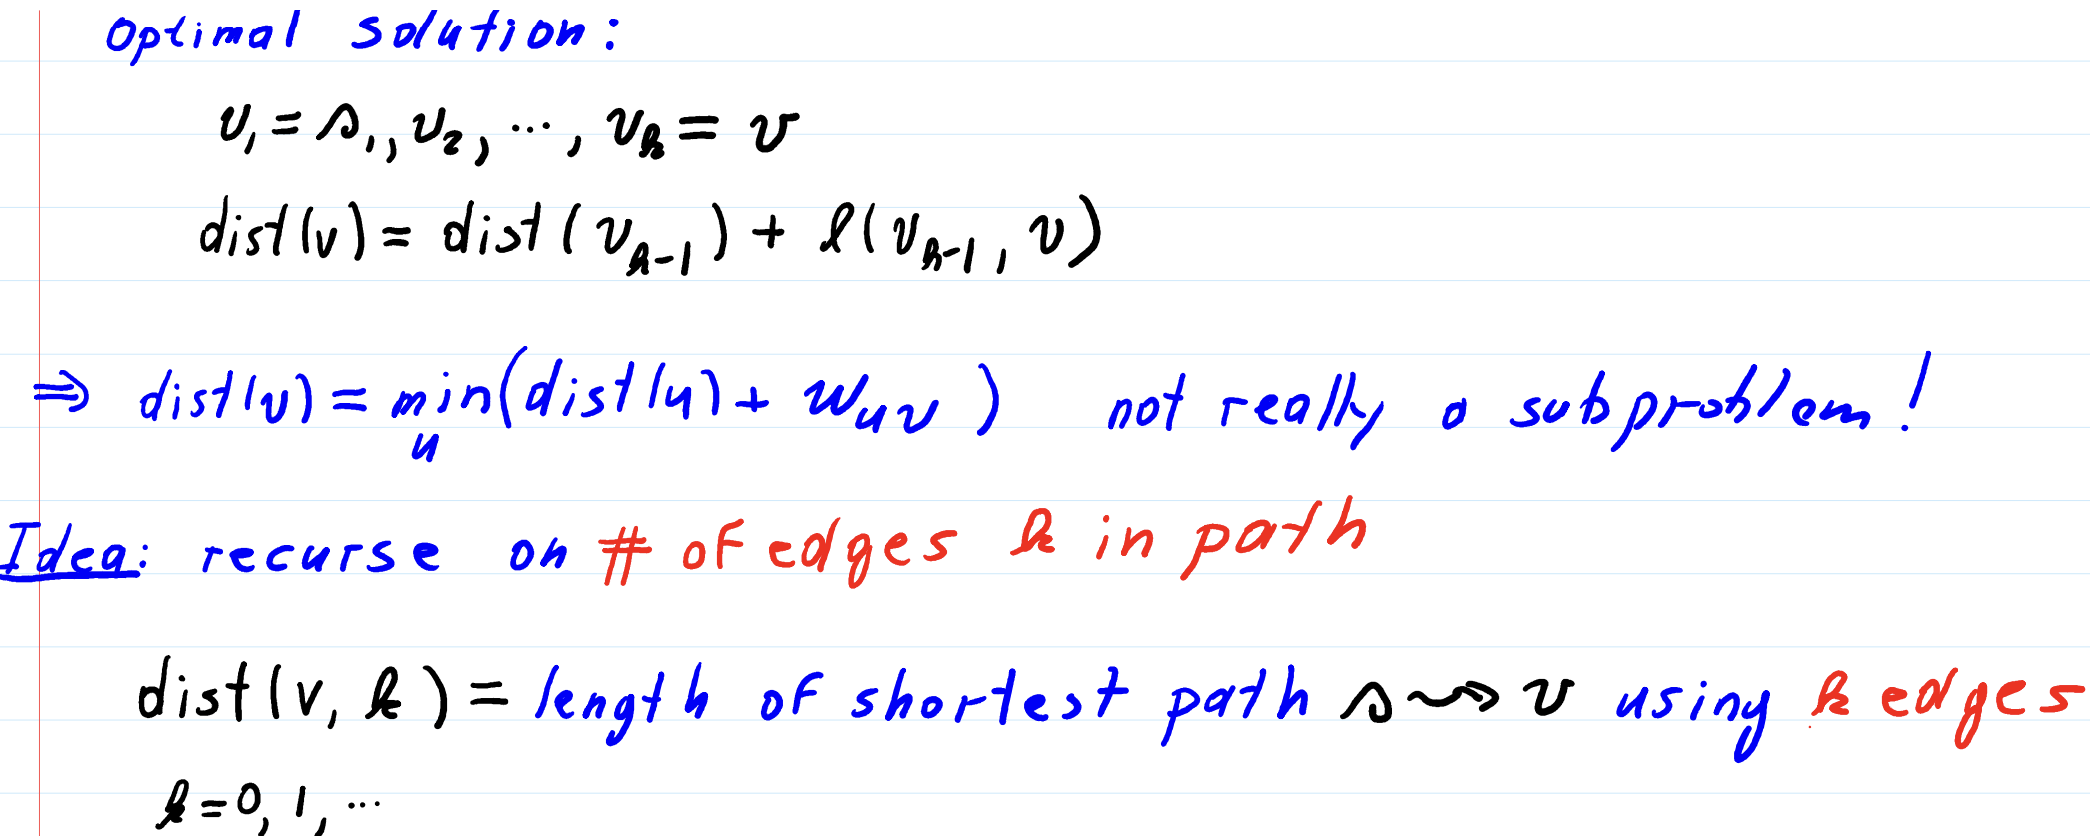 Optimal solution:
v₁ = s,, v₂, ..., vₖ = v
dist(v) = dist(vₖ₋₁) + l(vₖ₋₁, v)
⇒ dist(v) = min(dist(u) + w_uv) not really a subproblem!
u
Idea: recurse on # of edges k in path
dist(v, k) = length of shortest path s ⇝ v using k edges
k = 0, 1, ...